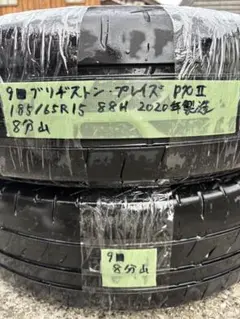 9 ブリヂストン・プレイズ PXII
185/65R15 88H 2020年製造
8分山
9
8分山